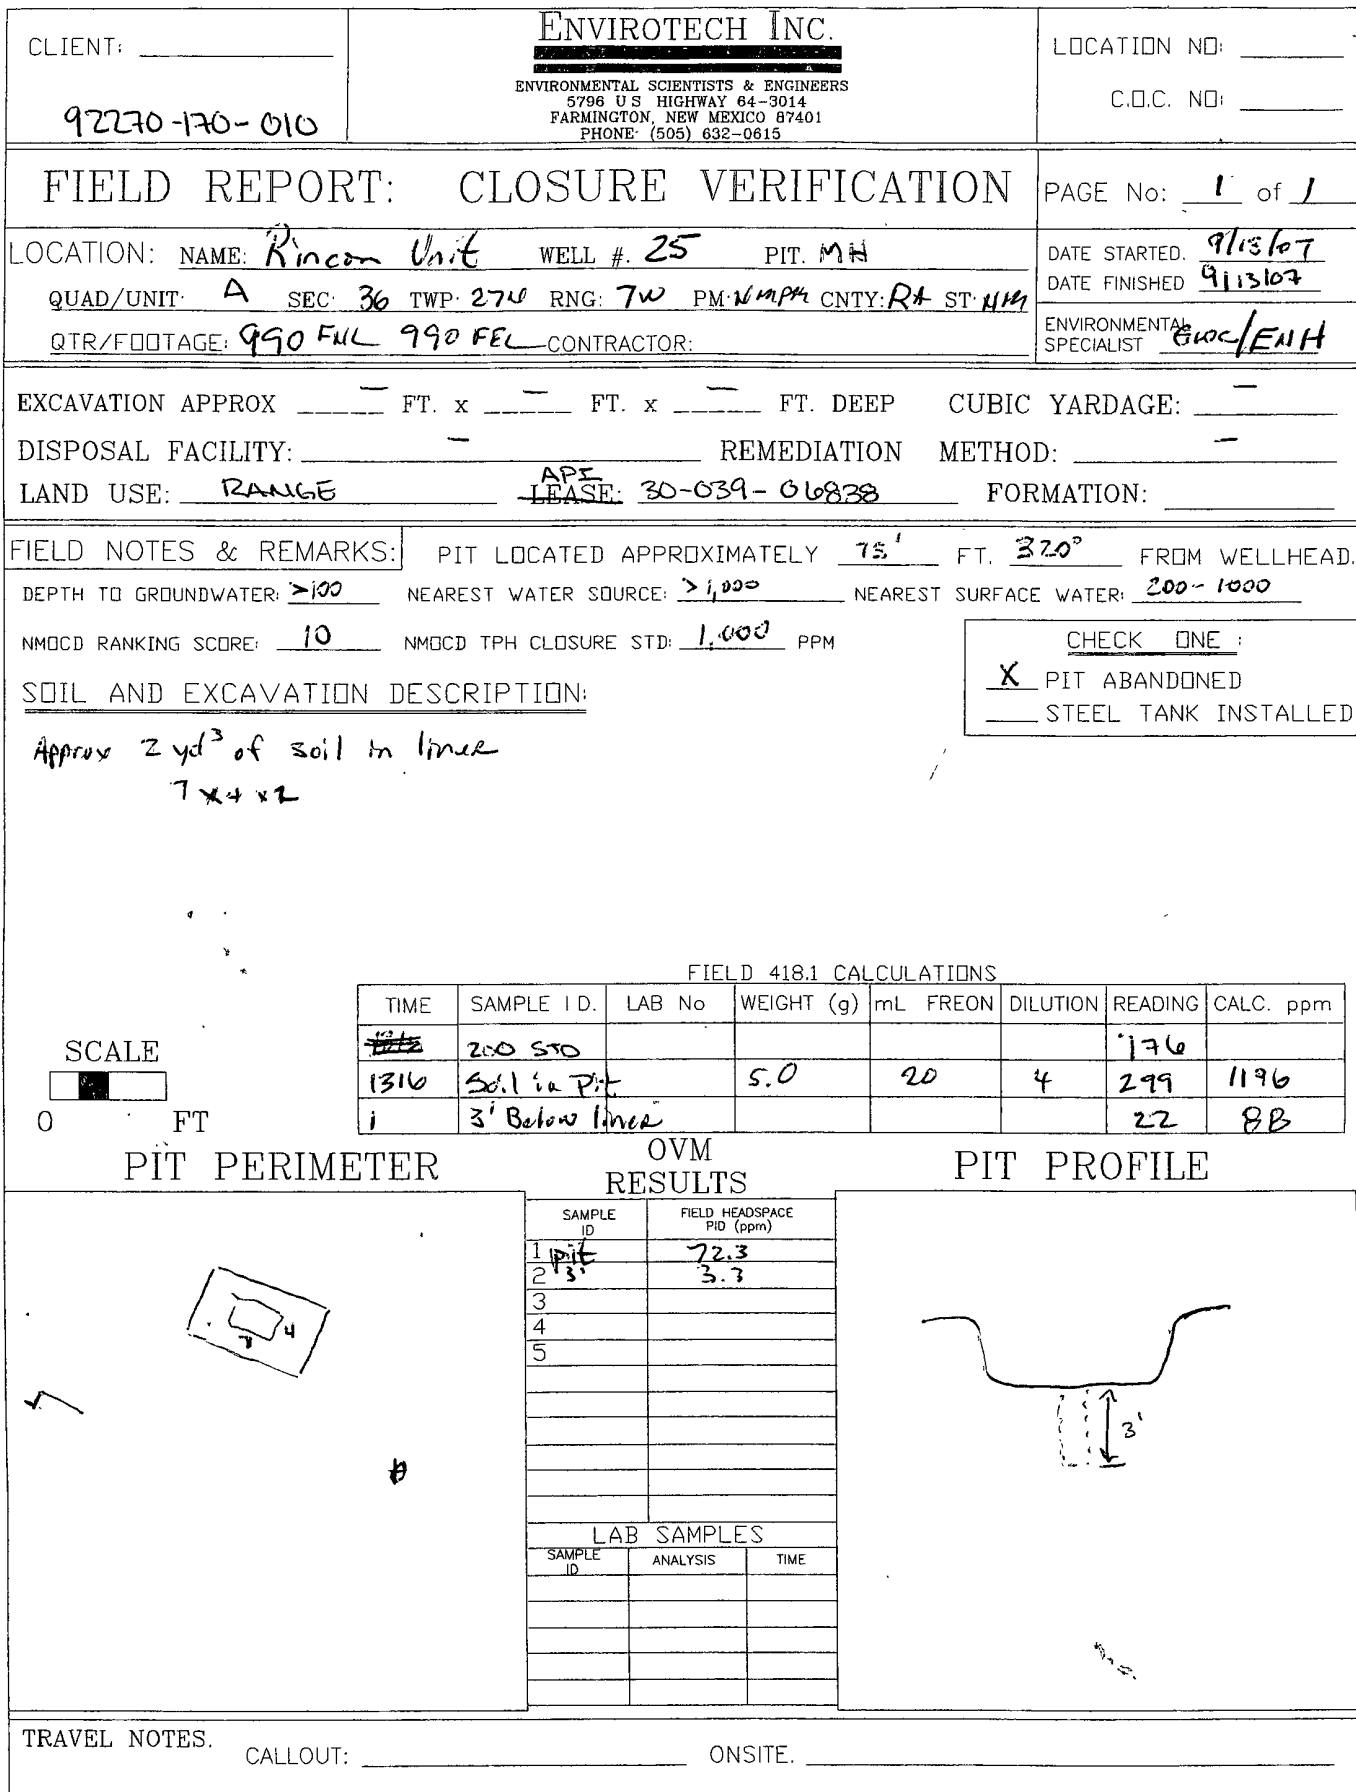 CLIENT:
92270-170-010
ENVIROTECH INC.
ENVIRONMENTAL SCIENTISTS & ENGINEERS
5796 U S HIGHWAY 64-3014
FARMINGTON, NEW MEXICO 87401
PHONE: (505) 632-0615
LOCATION NO:
C.O.C. NO:
FIELD REPORT: CLOSURE VERIFICATION
PAGE No: 1 of 1
LOCATION: NAME: Rincon Unit WELL #. 25 PIT. MH
QUAD/UNIT: A SEC: 36 TWP: 27N RNG: 7W PM: NMPM CNTY: RA ST: NM
QTR/FOOTAGE: 990 FNL 990 FEL CONTRACTOR:
DATE STARTED. 9/13/07
DATE FINISHED 9/13/07
ENVIRONMENTAL
SPECIALIST /ENH
EXCAVATION APPROX - FT. x - FT. x - FT. DEEP CUBIC YARDAGE: -
DISPOSAL FACILITY: - REMEDIATION METHOD: -
LAND USE: RANGE API LEASE: 30-039-06838 FORMATION:
FIELD NOTES & REMARKS: PIT LOCATED APPROXIMATELY 75' FT. 320° FROM WELLHEAD.
DEPTH TO GROUNDWATER: >100 NEAREST WATER SOURCE: >1,000 NEAREST SURFACE WATER: 200-1000
NMOCD RANKING SCORE: 10 NMOCD TPH CLOSURE STD: 1,000 PPM
CHECK ONE :
X PIT ABANDONED
STEEL TANK INSTALLED
SOIL AND EXCAVATION DESCRIPTION:
Approx 2 yd³ of soil in liner
7 x 4 x 2
FIELD 418.1 CALCULATIONS
TIME SAMPLE I D. LAB No WEIGHT (g) mL FREON DILUTION READING CALC. ppm
200 STD 176
1316 Soil in Pit 5.0 20 4 299 1196
3' Below liner 22 88
SCALE
0 FT
PIT PERIMETER
OVM
RESULTS
PIT PROFILE
SAMPLE ID FIELD HEADSPACE PID (ppm)
1 pit 72.3
2 3' 3.3
3
4
5
7 4
3'
LAB SAMPLES
SAMPLE ID ANALYSIS TIME
TRAVEL NOTES.
CALLOUT: ONSITE.